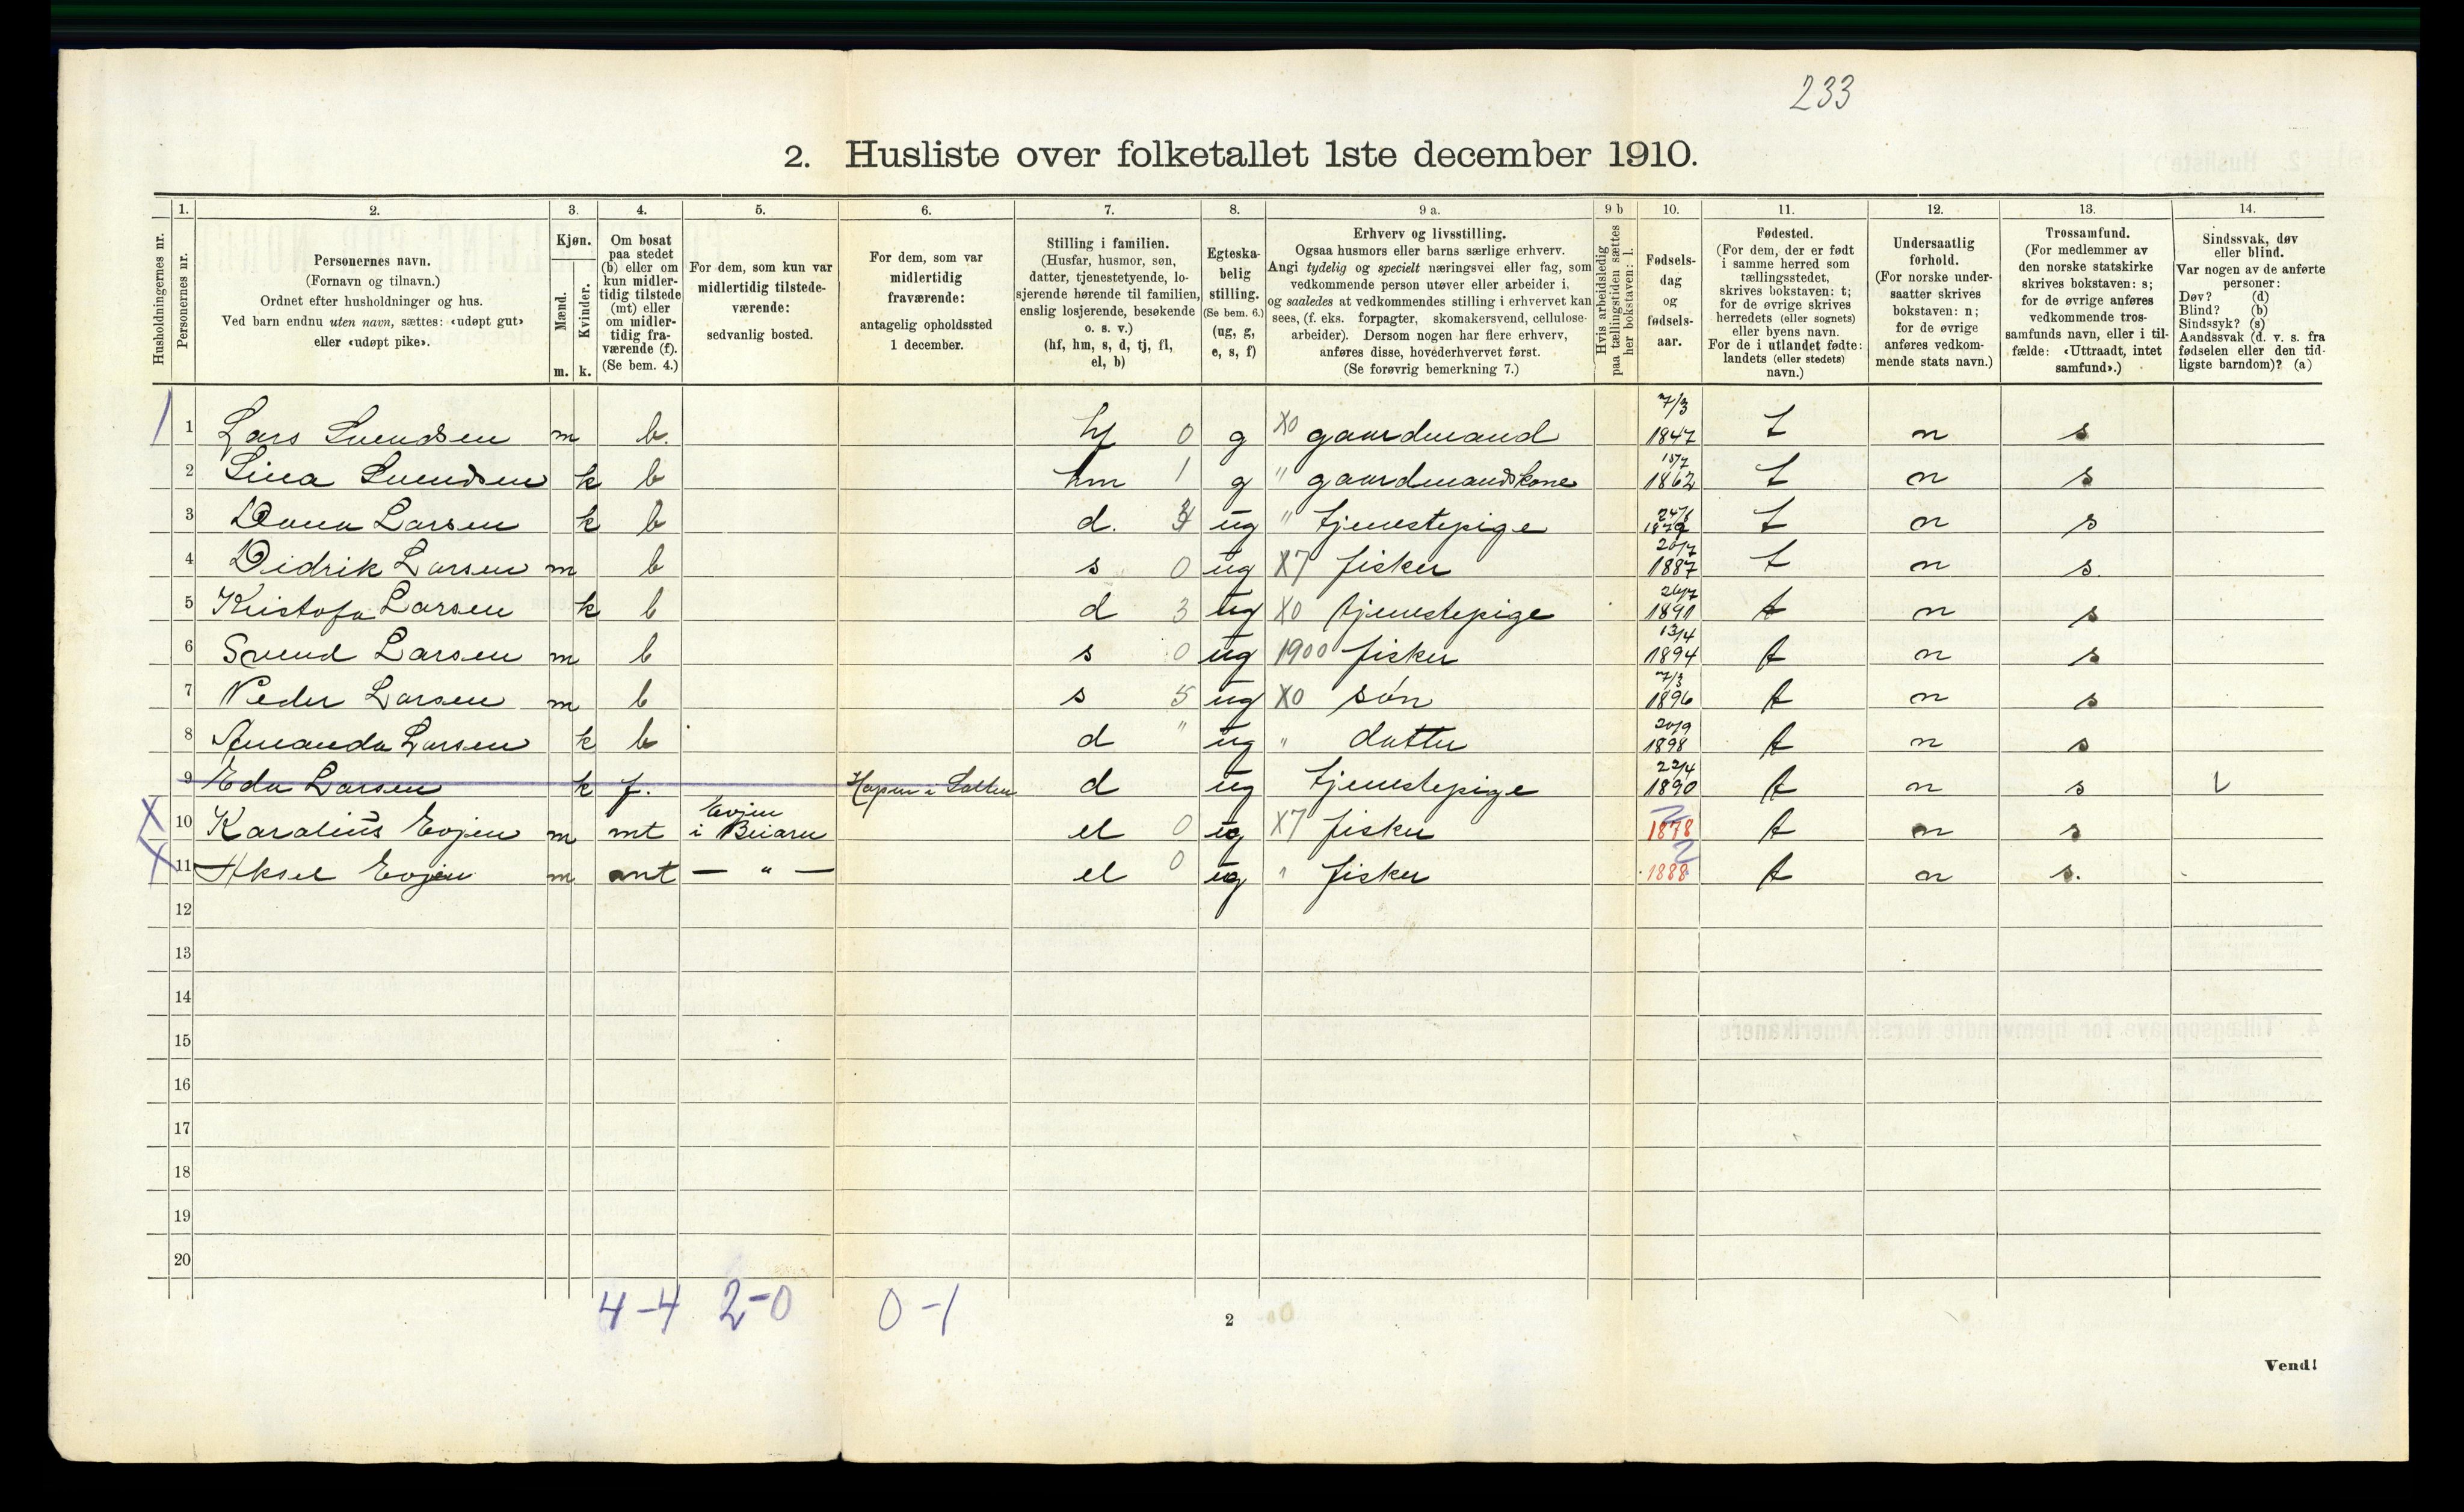 233
2. Husliste over folketallet 1ste december 1910.
Husholdningernes nr.
1. Personernes nr.
2. Personernes navn.
(Fornavn og tilnavn.)
Ordnet efter husholdninger og hus.
Ved barn endnu uten navn, sættes: «udøpt gut»
eller «udøpt pike».
3. Kjøn.
Mænd. Kvinder.
m. k.
4. Om bosat
paa stedet
(b) eller om
kun midler-
tidig tilstede
(mt) eller
om midler-
tidig fra-
værende (f).
(Se bem. 4.)
5. For dem, som kun var
midlertidig tilstede-
værende:
sedvanlig bosted.
6. For dem, som var
midlertidig
fraværende:
antagelig opholdssted
1 december.
7. Stilling i familien.
(Husfar, husmor, søn,
datter, tjenestetyende, lo-
sjerende hørende til familien,
enslig losjerende, besøkende
o. s. v.)
(hf, hm, s, d, tj, fl,
el, b)
8. Egteska-
belig
stilling.
(Se bem. 6.)
(ug, g,
e, s, f)
9 a. Erhverv og livsstilling.
Ogsaa husmors eller barns særlige erhverv.
Angi tydelig og specielt næringsvei eller fag, som
vedkommende person utøver eller arbeider i,
og saaledes at vedkommendes stilling i erhvervet kan
sees, (f. eks. forpagter, skomakersvend, cellulose-
arbeider). Dersom nogen har flere erhverv,
anføres disse, hovederhvervet først.
(Se forøvrig bemerkning 7.)
9 b Hvis arbeidsledig
paa tællingstiden sættes
her bokstaven: l.
10. Fødsels-
dag
og
fødsels-
aar.
11. Fødested.
(For dem, der er født
i samme herred som
tællingsstedet,
skrives bokstaven: t;
for de øvrige skrives
herredets (eller sognets)
eller byens navn.
For de i utlandet fødte:
landets (eller stedets)
navn.)
12. Undersaatlig
forhold.
(For norske under-
saatter skrives
bokstaven: n;
for de øvrige
anføres vedkom-
mende stats navn.)
13. Trossamfund.
(For medlemmer av
den norske statskirke
skrives bokstaven: s;
for de øvrige anføres
vedkommende tros-
samfunds navn, eller i til-
fælde: «Uttraadt, intet
samfund».)
14. Sindssvak, døv
eller blind.
Var nogen av de anførte
personer:
Døv? (d)
Blind? (b)
Sindssyk? (s)
Aandssvak (d. v. s. fra
fødselen eller den tid-
ligste barndom)? (a)
1 1 Lars Svendsen m b. hf 0 g X0 gaardmand 7/3 1847 t n s
2 Lina Svendsen k b hm 1 g " gaardmandskone 15/7 1862 t n s
3 Dona Larsen k b d. ug " tjenestepige t n s
4 Didrik Larsen m b s 0 ug X7 fisker 20/7 1887 t n s.
5 Kristofa Larsen k b d 3 ug X0 tjenestepige 26/7 1891 t n s
6 Svend Larsen m b s 0 ug 1900 fisker 13/4 1894 t n s
7 Peder Larsen m b s 5 ug X0 søn 7/3 1896 t n s
8 Amanda Larsen k b d " ug " datter 20/9 1898 t n s
9 Eda Larsen k f. d ug tjenestepige 22/4 1890 t n s
X 10 Karalius Evjen m mt Evjen i Beiarn el 0 ug X7 fisker 1878 t n s
X 11 Aksel Evjen m mt — " — el 0 ug " fisker 1888 t n s.
12
13
14
15
16
17
18
19
20
4-4 2-0 0-1
2
Vend!